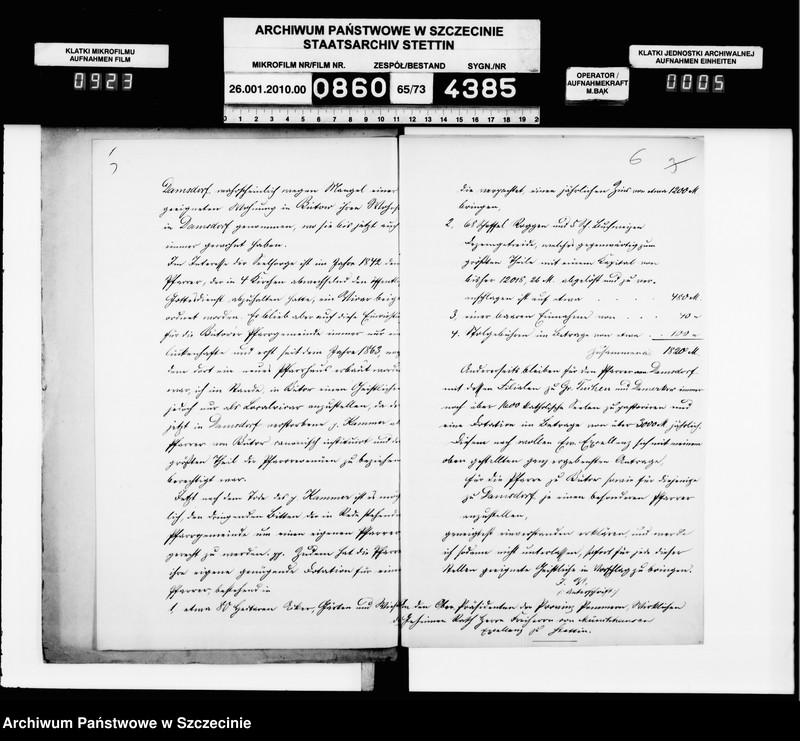 ARCHIWUM PAŃSTWOWE W SZCZECINIE
STAATSARCHIV STETTIN
MIKROFILM NR/FILM NR.
ZESPÓŁ/BESTAND
SYGN./NR
26.001.2010.00
0860
65/73
4385
KLATKI MIKROFILMU
AUFNAHMEN FILM
0923
OPERATOR /
AUFNAHMEKRAFT
M.BĄK
KLATKI JEDNOSTKI ARCHIWALNEJ
AUFNAHMEN EINHEITEN
0005
0 1 2 3 4 5 6 7 8 9 10 11 12 13 14 15 16 17 18 19 20
Damsdorf, wahrscheinlich wegen Mangel einer
geeigneten Wohnung in Bütow ihren
in Damsdorf genommen, wo sie bis jetzt auch
immer gewohnt haben.
Im Interesse der Seelsorge ist im Jahre 1842 dem
Pfarrer, der in 4 Kirchen abwechselnd den
Gottesdienst abzuhalten hatte, ein Vicar
ordnet worden. Es blieb aber auch diese
für die Bütower Pfarrgemeinde immer nur
lückenhafte und erst seit dem Jahre 1863,
dem dort ein neues Pfarrhaus erbaut worden
war, ich im Stande, in Bütow einen Geistlichen
jedoch nur als Localvicar anzustellen, da der
jetzt in Damsdorf verstorbene p. Kammer als
Pfarrer von Bütow canonisch instituirt und den
größten Theil der Pfarrrevenüen zu beziehen
berechtigt war.
Jetzt nach dem Tode des p. Kammer ist es
lich, den dringenden Bitten der in Rede stehenden
Pfarrgemeinde um einen eigenen Pfarrer
gerecht zu werden. pp. Zudem hat die Pfarre
ihre eigene genügende Dotation für einen
Pfarrer, bestehend in
1. etwa 80 Hectaren Acker, Gärten und Wiesen
6
die verpachtet einen jährlichen Zins von etwa 1200 M
bringen,
2. 68 Scheffel Roggen und 5 Sch. Buchweizen
Dezemgetreide, welches gegenwärtig zum
größten Theile mit einem Kapital von
bisher 12015,26 M. abgelöst und zu
anschlagen ist auf etwa . . . . 480 M.
3. einer baaren Einnahme von . . . 40 "
4. Stolgebühren im Betrage von etwa . . 100 "
Zusammen 1820 M
Andererseits bleiben für den Pfarrer von Damsdorf
mit dessen Filialen zu Gr. Tuchen und immer
noch über 1400 katholische Seelen zu pastoriren und
eine Dotation im Betrage von über 3000 M. jährlich.
Diesem nach wollen Ew. Excellenz sich mit meinem
oben gestellten ganz ergebensten Antrage,
für die Pfarre zu Bütow sowie für diejenige
zu Damsdorf je einen besonderen Pfarrer
anzustellen,
geneigtest einverstanden erklären, und werde
ich sodann nicht unterlassen, sofort für jede dieser
Stellen geeignete Geistliche in Vorschlag zu bringen.
(Unterschrift)
den Ober-Präsidenten der Provinz Pommern, Wirklichen
Geheimen Rath Herrn Freiherrn von Münchhausen
Excellenz zu Stettin.
Archiwum Państwowe w Szczecinie